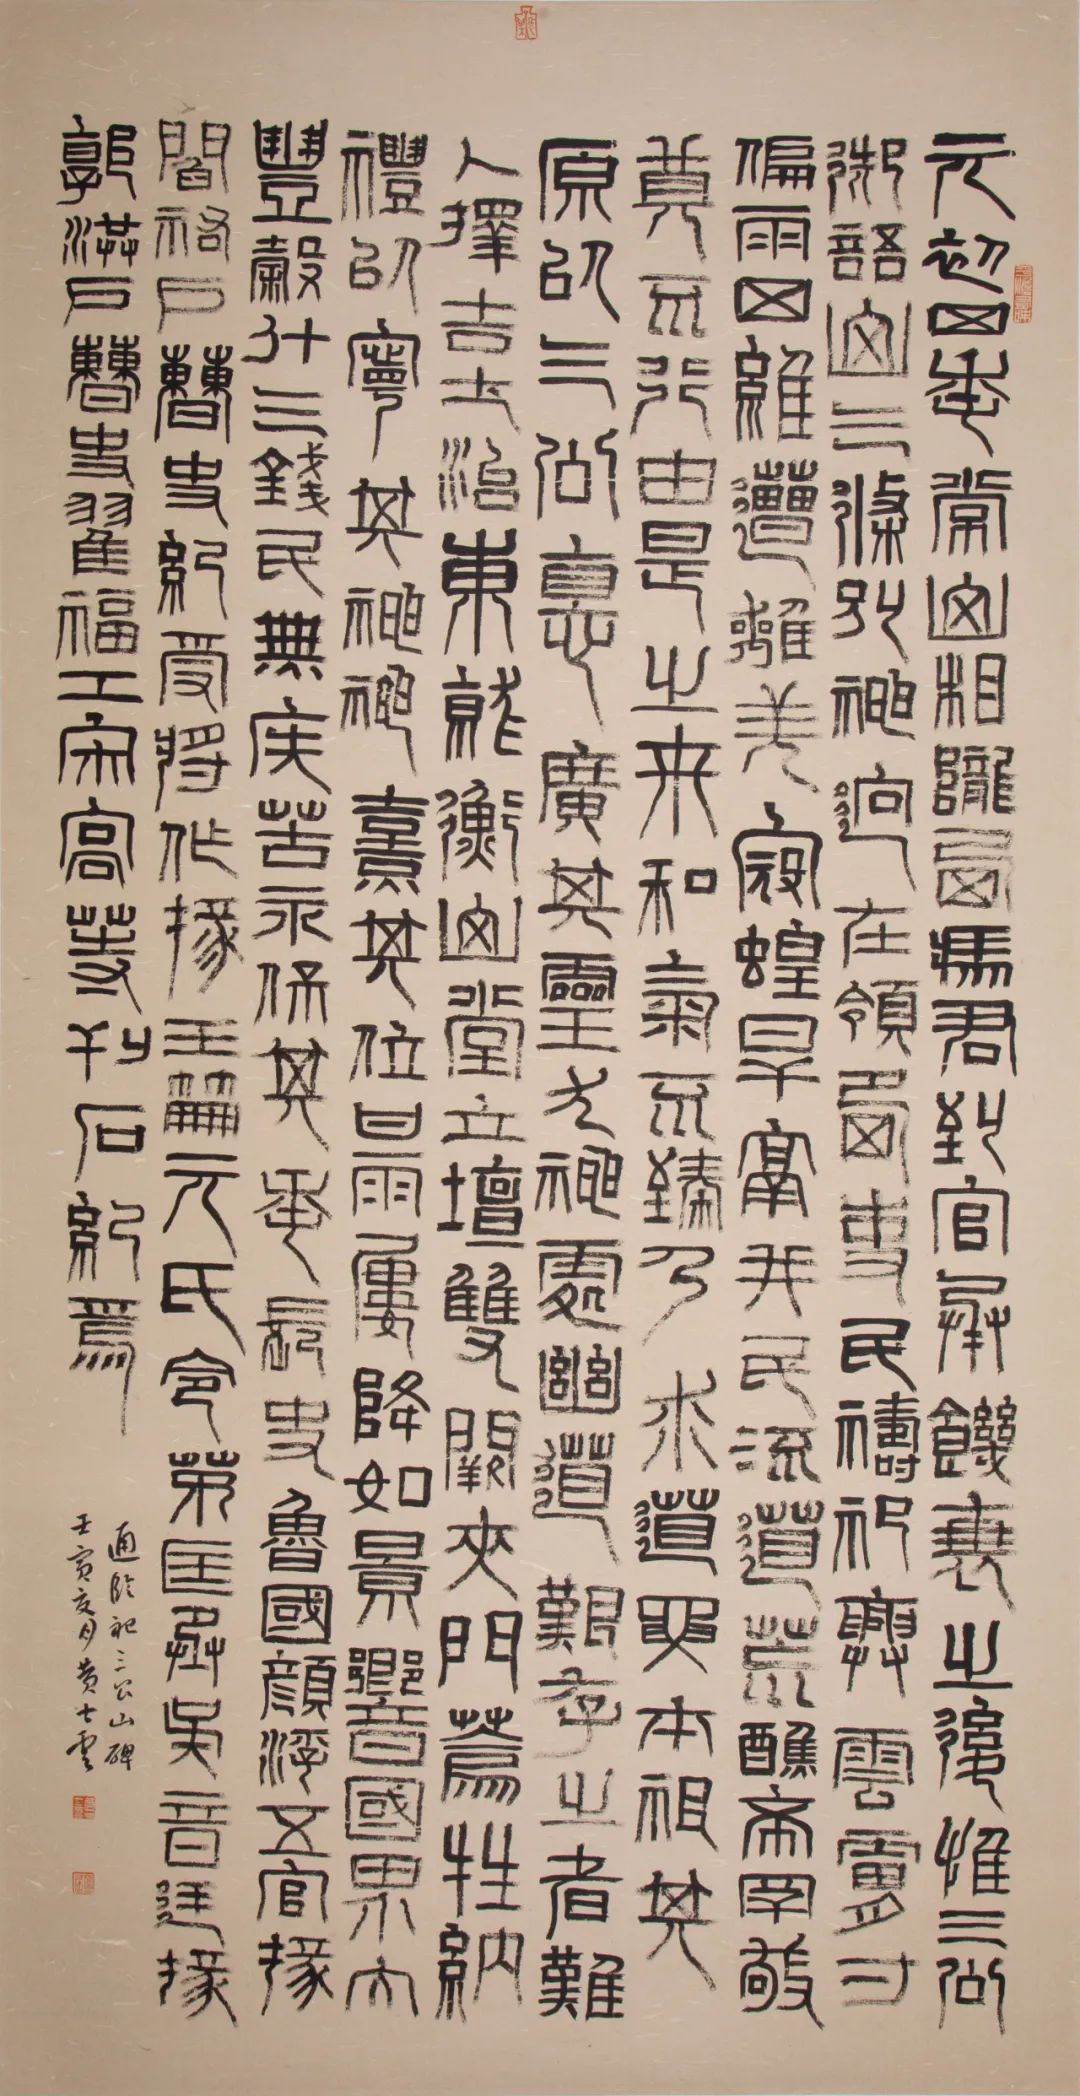 元初四年常山相隴西馮君到官承饑衰之後惟三公
御語山三條別神迥在領西吏民禱祀興雲膚寸
偏雨四維遭離羌寇蝗旱鬲并民流道荒醮希罕敬
奠不行由是之來和氣不臻乃求道要本祖其
原以三公悳廣其靈尤神處幽道艱存之者難
卜擇吉土治東就衡山堂立壇雙闕夾門薦牲納
禮以寧其神神熹其位甘雨屢降如景響國界大
豐穀斗三錢民無疾苦永保其年長史魯國顏浮五官掾
閻祐戶曹史紀受將作掾王笧元氏令茅匡丞吳音廷掾
郭洪戶曹史翟福工宋高等刊石紀焉
通臨祀三公山碑
壬寅夏月黄士雲